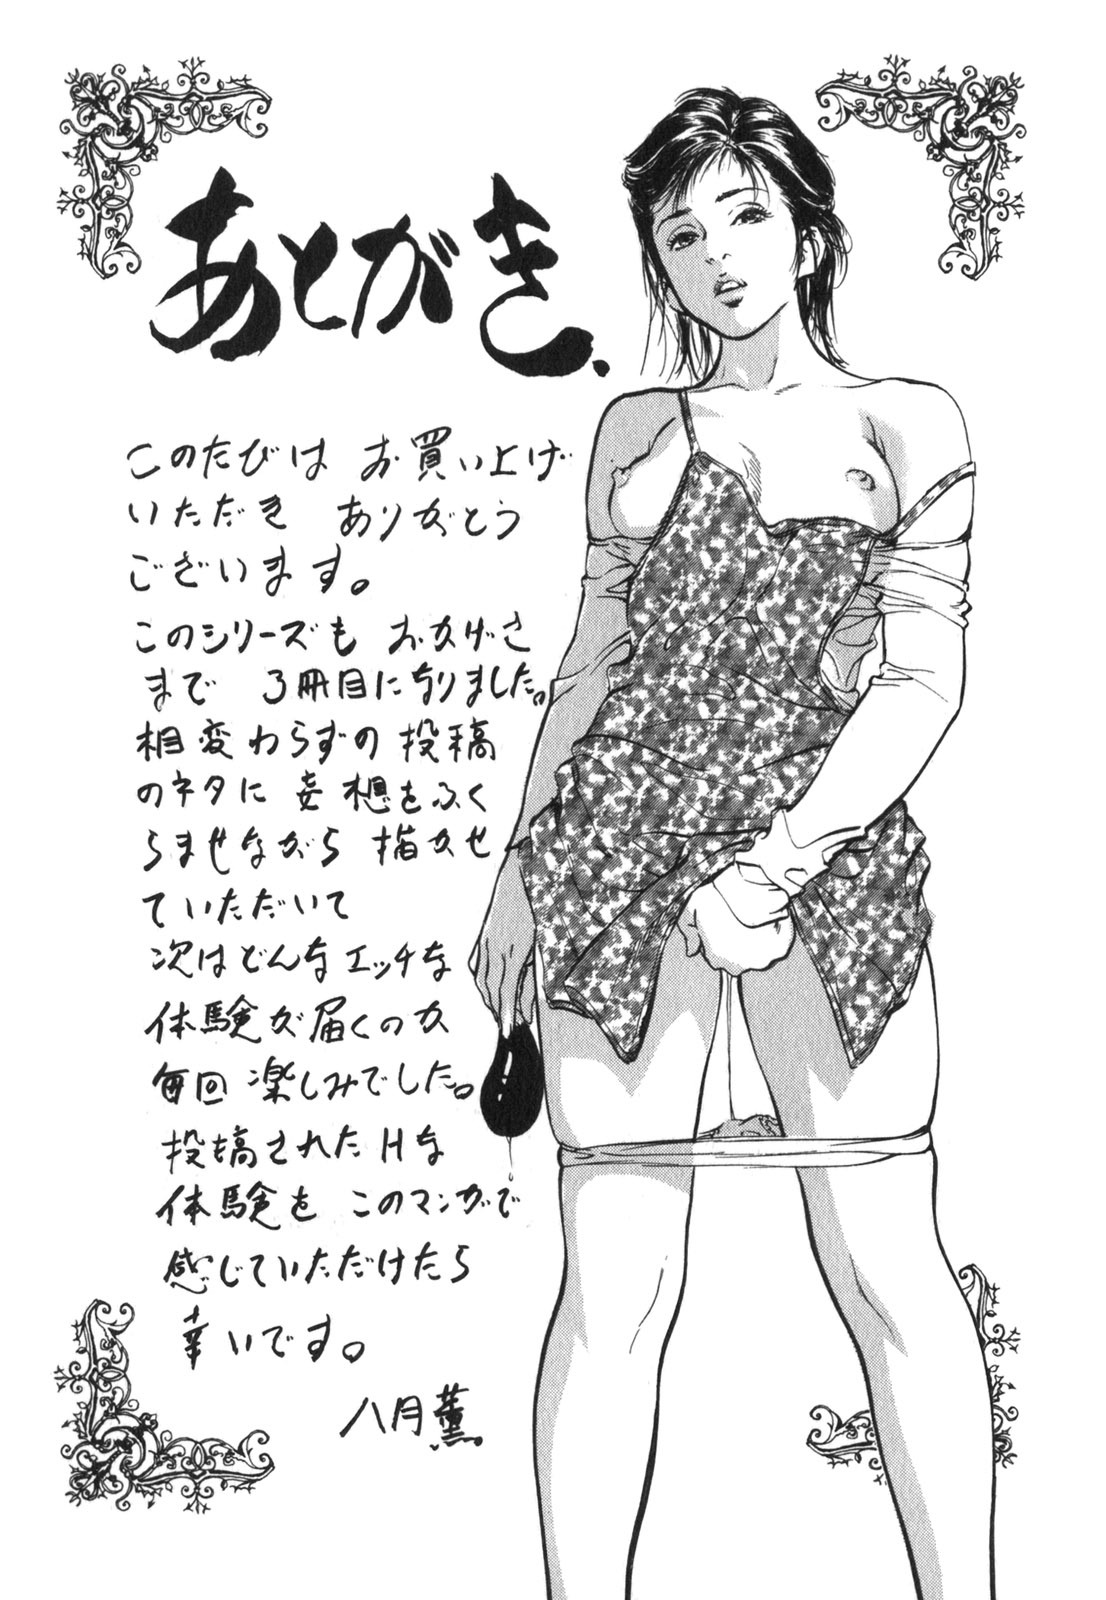 あとがき、
このたびは お買い上げ
いただき ありがとう
ございます。
このシリーズも おかげさ
まで 3冊目になりました。
相変わらずの投稿
のネタに 妄想をふく
らませながら 描かせ
ていただいて
次はどんなエッチな
体験が届くのか
毎回 楽しみでした。
投稿されたHな
体験を このマンガで
感じていただけたら
幸いです。
八月薫